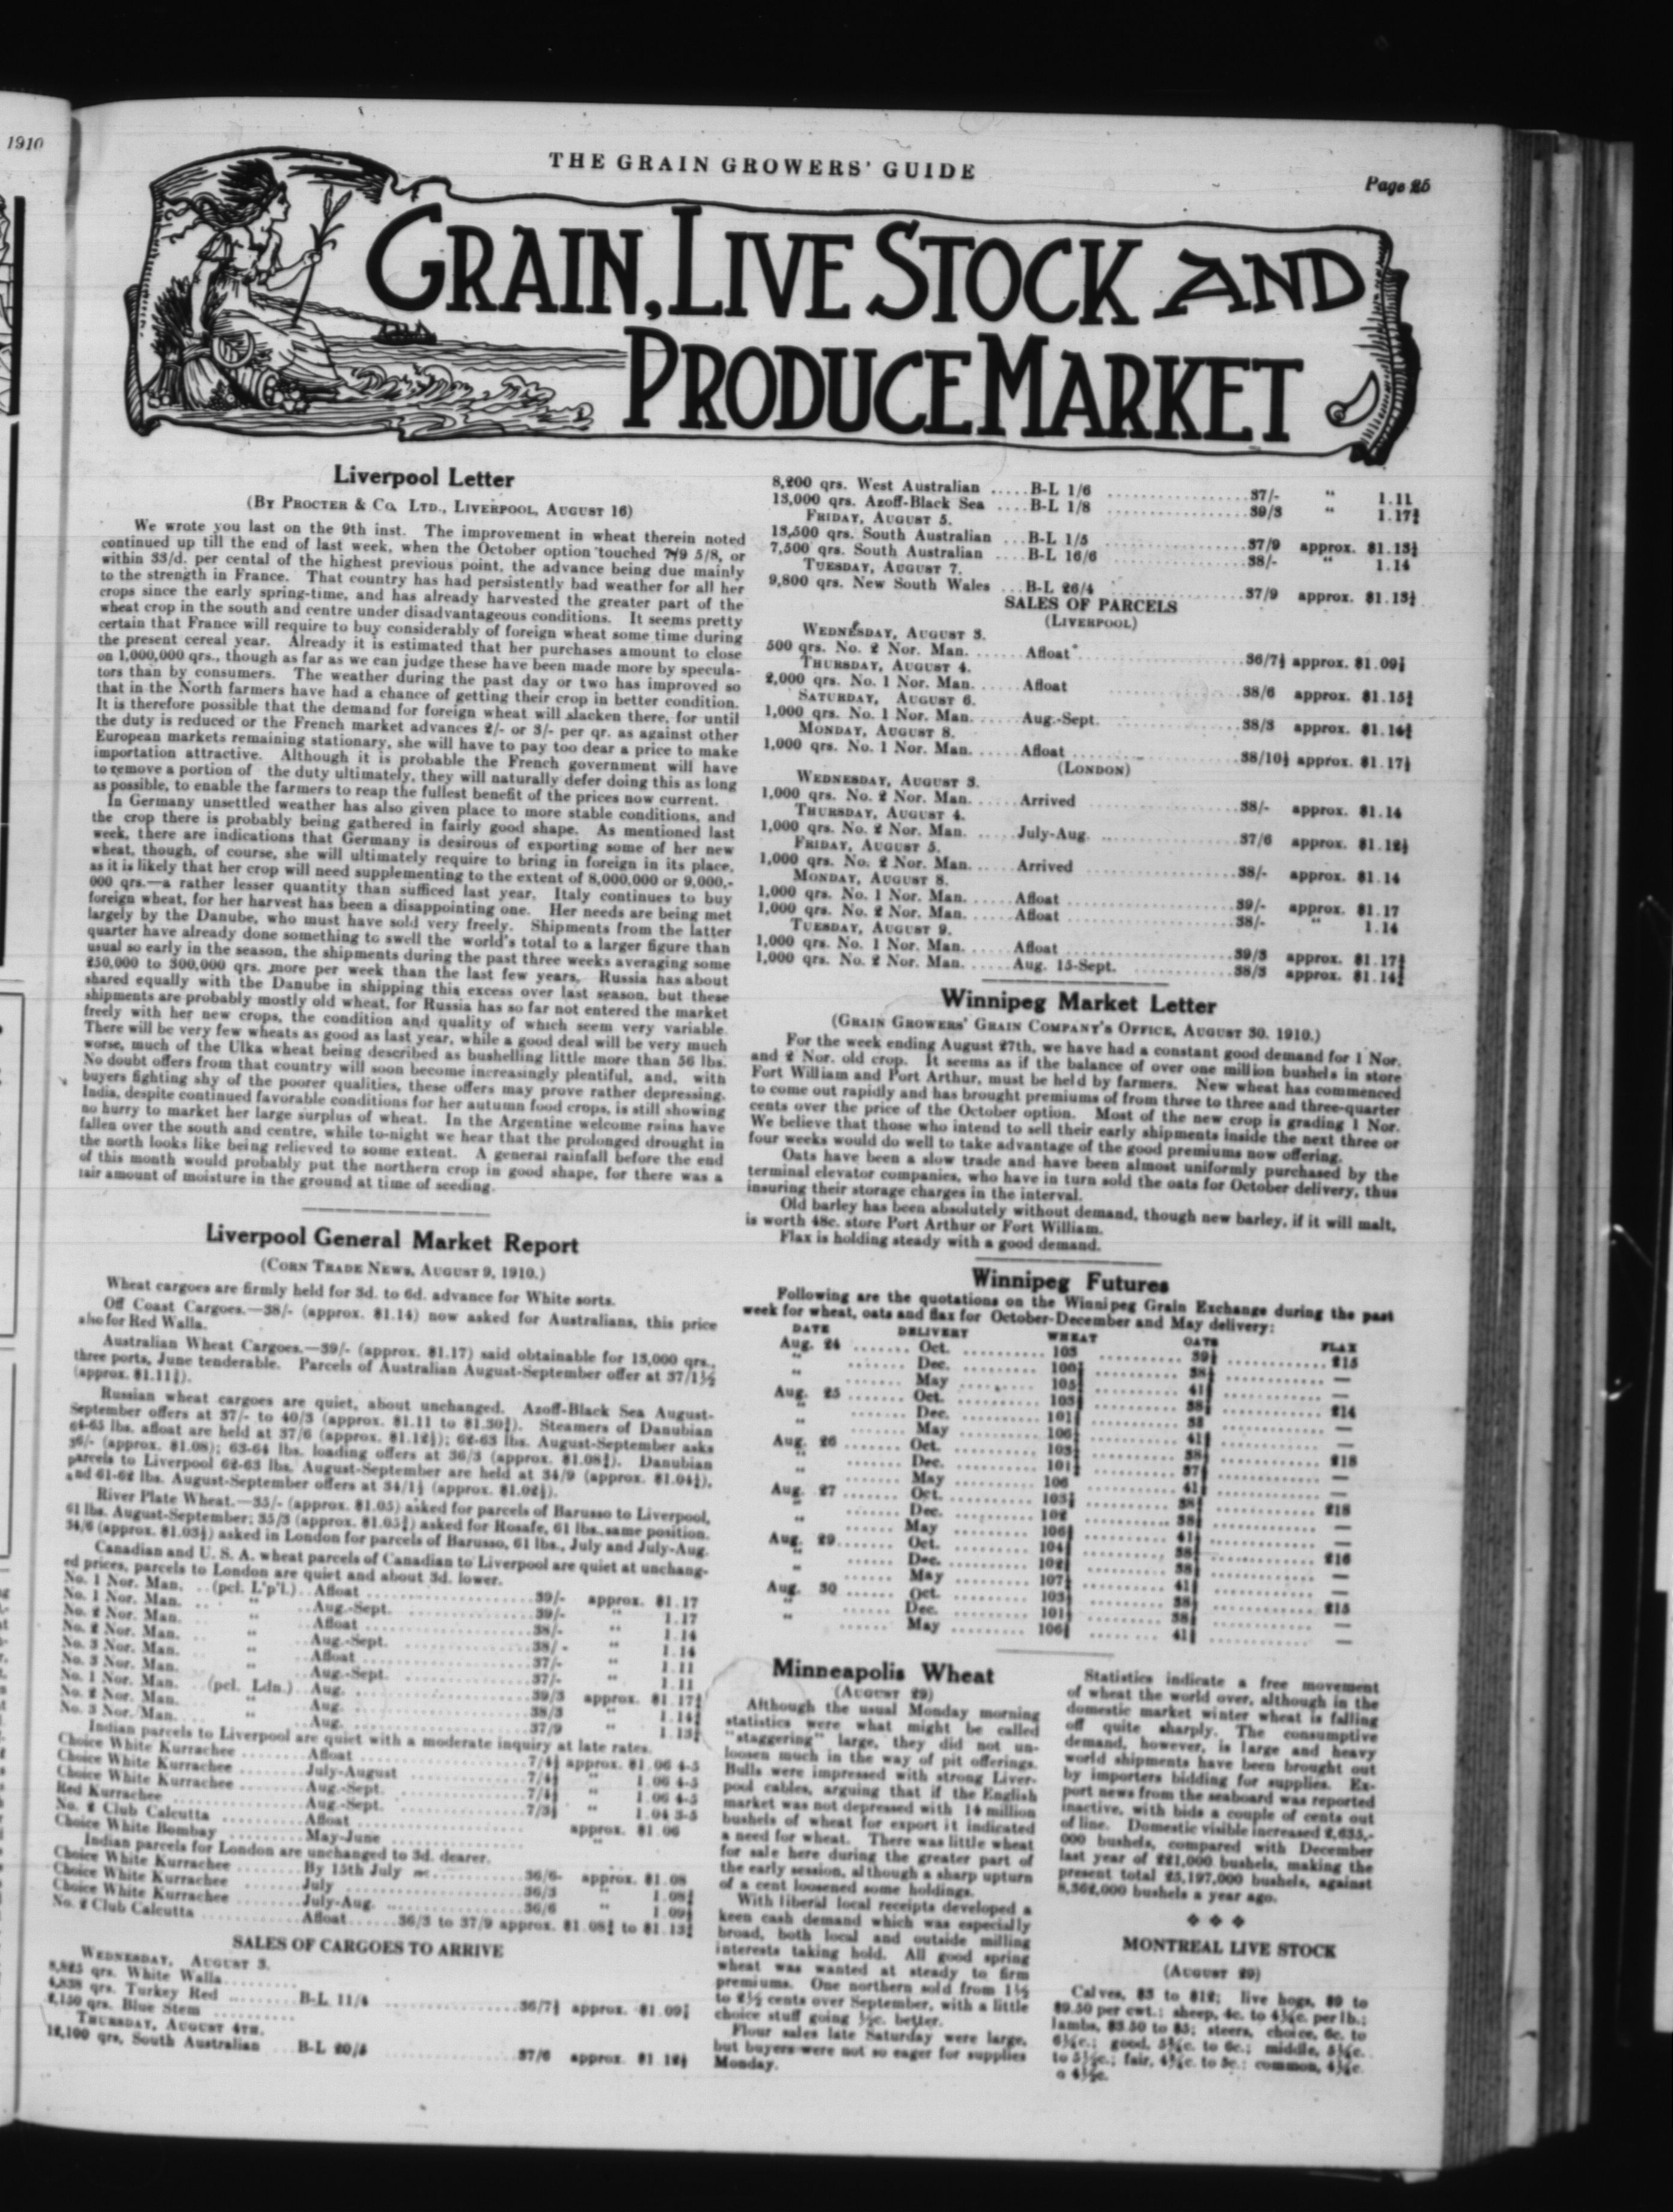 1910
THE GRAIN GROWERS' GUIDE
Page 25
GRAIN, LIVE STOCK AND
PRODUCE MARKET
Liverpool Letter
(By Procter & Co. Ltd., Liverpool, August 16)
We wrote you last on the 9th inst. The improvement in wheat therein noted
continued up till the end of last week, when the October option touched 7/9 5/8, or
within 33/d. per cental of the highest previous point, the advance being due mainly
to the strength in France. That country has had persistently bad weather for all her
crops since the early spring-time, and has already harvested the greater part of the
wheat crop in the south and centre under disadvantageous conditions. It seems pretty
certain that France will require to buy considerably of foreign wheat some time during
the present cereal year. Already it is estimated that her purchases amount to close
on 1,000,000 qrs., though as far as we can judge these have been made more by specula-
tors than by consumers. The weather during the past day or two has improved so
that in the North farmers have had a chance of getting their crop in better condition.
It is therefore possible that the demand for foreign wheat will slacken there, for until
the duty is reduced or the French market advances 2/- or 3/- per qr. as against other
European markets remaining stationary, she will have to pay too dear a price to make
importation attractive. Although it is probable the French government will have
to remove a portion of the duty ultimately, they will naturally defer doing this as long
as possible, to enable the farmers to reap the fullest benefit of the prices now current.
In Germany unsettled weather has also given place to more stable conditions, and
the crop there is probably being gathered in fairly good shape. As mentioned last
week, there are indications that Germany is desirous of exporting some of her new
wheat, though, of course, she will ultimately require to bring in foreign in its place,
as it is likely that her crop will need supplementing to the extent of 8,000,000 or 9,000,-
000 qrs.—a rather lesser quantity than sufficed last year. Italy continues to buy
foreign wheat, for her harvest has been a disappointing one. Her needs are being met
largely by the Danube, who must have sold very freely. Shipments from the latter
quarter have already done something to swell the world's total to a larger figure than
usual so early in the season, the shipments during the past three weeks averaging some
250,000 to 300,000 qrs. more per week than the last few years. Russia has about
shared equally with the Danube in shipping this excess over last season, but these
shipments are probably mostly old wheat, for Russia has so far not entered the market
freely with her new crops, the condition and quality of which seem very variable.
There will be very few wheats as good as last year, while a good deal will be very much
worse, much of the Ulka wheat being described as bushelling little more than 56 lbs.
No doubt offers from that country will soon become increasingly plentiful, and, with
buyers fighting shy of the poorer qualities, these offers may prove rather depressing.
India, despite continued favorable conditions for her autumn food crops, is still showing
no hurry to market her large surplus of wheat. In the Argentine welcome rains have
fallen over the south and centre, while to-night we hear that the prolonged drought in
the north looks like being relieved to some extent. A general rainfall before the end
of this month would probably put the northern crop in good shape, for there was a
fair amount of moisture in the ground at time of seeding.
Liverpool General Market Report
(Corn Trade News, August 9, 1910.)
Wheat cargoes are firmly held for 3d. to 6d. advance for White sorts.
Off Coast Cargoes.—38/- (approx. $1.14) now asked for Australians, this price
also for Red Walla.
Australian Wheat Cargoes.—39/- (approx. $1.17) said obtainable for 13,000 qrs.,
three ports, June tenderable. Parcels of Australian August-September offer at 37/1½
(approx. $1.11
Russian wheat cargoes are quiet, about unchanged. Azoff-Black Sea August-
September offers at 37/- to 40/3 (approx. $1.11 to $1.30 Steamers of Danubian
64-65 lbs. afloat are held at 37/6 (approx. $1.12½); 62-63 lbs. August-September asks
36/- (approx. $1.08); 63-64 lbs. loading offers at 36/3 (approx. $1.08 Danubian
parcels to Liverpool 62-63 lbs. August-September are held at 34/9 (approx. $1.04
and 61-62 lbs. August-September offers at 34/1½ (approx. $1.02
River Plate Wheat.—35/- (approx. $1.05) asked for parcels of Barusso to Liverpool,
61 lbs. August-September; 35/3 (approx. $1.05 asked for Rosafe, 61 lbs., same position.
34/6 (approx. $1.03½) asked in London for parcels of Barusso, 61 lbs., July and July-Aug.
Canadian and U. S. A. wheat parcels of Canadian to Liverpool are quiet at unchang-
ed prices, parcels to London are quiet and about 3d. lower.
No. 1 Nor. Man. .. (pcl. L'p'l.) .. Afloat ........ 39/- approx. $1.17
No. 1 Nor. Man. .. " .. Aug.-Sept. ........ 39/- " 1.17
No. 2 Nor. Man. .. " .. Afloat ........ 38/- " 1.14
No. 2 Nor. Man. .. " .. Aug.-Sept. ........ 38/- " 1.14
No. 3 Nor. Man. .. " .. Afloat ........ 37/- " 1.11
No. 3 Nor. Man. .. " .. Aug.-Sept. ........ 37/- " 1.11
No. 1 Nor. Man. .. (pcl. Ldn.) .. Aug. ........ 39/3 approx. $1.17
No. 2 Nor. Man. .. " .. Aug. ........ 38/3 " 1.14
No. 3 Nor. Man. .. " .. Aug. ........ 37/9 " 1.13
Indian parcels to Liverpool are quiet with a moderate inquiry at late rates.
Choice White Kurrachee ........ Afloat ........ 7/4 approx. $1.06 4-5
Choice White Kurrachee ........ July-August ........ 7/4 " 1.06 4-5
Choice White Kurrachee ........ Aug.-Sept. ........ 7/4 " 1.06 4-5
Red Kurrachee ........ Aug.-Sept. ........ 7/3 " 1.04 3-5
No. 2 Club Calcutta ........ Afloat ........ approx. $1.06
Choice White Bombay ........ May-June ........ "
Indian parcels for London are unchanged to 3d. dearer.
Choice White Kurrachee ........ By 15th July ........ 36/6- approx. $1.08
Choice White Kurrachee ........ July ........ 36/3 " 1.08
Choice White Kurrachee ........ July-Aug. ........ 36/6 " 1.09
No. 2 Club Calcutta ........ Afloat ...... 36/3 to 37/9 approx. $1.08 to $1.13
SALES OF CARGOES TO ARRIVE
Wednesday, August 3.
8,825 qrs. White Walla ........
4,838 qrs. Turkey Red ........ B-L 11/4 ........ 36/7½ approx. $1.09
2,150 qrs. Blue Stem ........
Thursday, August 4th.
12,100 qrs. South Australian B-L 20/5 ........ 37/6 approx. $1.12½
8,200 qrs. West Australian ..... B-L 1/6 ........ 37/- " 1.11
13,000 qrs. Azoff-Black Sea .... B-L 1/8 ........ 39/3 " 1.17
Friday, August 5.
13,500 qrs. South Australian ... B-L 1/5 ........ 37/9 approx. $1.13
7,500 qrs. South Australian .... B-L 16/6 ........ 38/- " 1.14
Tuesday, August 7.
9,800 qrs. New South Wales ... B-L 26/4 ........ 37/9 approx. $1.13
SALES OF PARCELS
(Liverpool)
Wednesday, August 3.
500 qrs. No. 2 Nor. Man. ...... Afloat ........ 36/7½ approx. $1.09
Thursday, August 4.
2,000 qrs. No. 1 Nor. Man. ..... Afloat ........ 38/6 approx. $1.15
Saturday, August 6.
1,000 qrs. No. 1 Nor. Man. ..... Aug.-Sept. ........ 38/3 approx. $1.14
Monday, August 8.
1,000 qrs. No. 1 Nor. Man. ..... Afloat ........ 38/10½ approx. $1.17
(London)
Wednesday, August 3.
1,000 qrs. No. 2 Nor. Man. ..... Arrived ........ 38/- approx. $1.14
Thursday, August 4.
1,000 qrs. No. 2 Nor. Man. ..... July-Aug. ........ 37/6 approx. $1.12½
Friday, August 5.
1,000 qrs. No. 2 Nor. Man. ..... Arrived ........ 38/- approx. $1.14
Monday, August 8.
1,000 qrs. No. 1 Nor. Man. ..... Afloat ........ 39/- approx. $1.17
1,000 qrs. No. 2 Nor. Man. ..... Afloat ........ 38/- " 1.14
Tuesday, August 9.
1,000 qrs. No. 1 Nor. Man. ..... Afloat ........ 39/3 approx. $1.17
1,000 qrs. No. 2 Nor. Man. ..... Aug. 15-Sept. ........ 38/3 approx. $1.14
Winnipeg Market Letter
(Grain Growers' Grain Company's Office, August 30, 1910.)
For the week ending August 27th, we have had a constant good demand for 1 Nor.
and 2 Nor. old crop. It seems as if the balance of over one million bushels in store
Fort William and Port Arthur, must be held by farmers. New wheat has commenced
to come out rapidly and has brought premiums of from three to three and three-quarter
cents over the price of the October option. Most of the new crop is grading 1 Nor.
We believe that those who intend to sell their early shipments inside the next three or
four weeks would do well to take advantage of the good premiums now offering.
Oats have been a slow trade and have been almost uniformly purchased by the
terminal elevator companies, who have in turn sold the oats for October delivery, thus
insuring their storage charges in the interval.
Old barley has been absolutely without demand, though new barley, if it will malt,
is worth 48c. store Port Arthur or Fort William.
Flax is holding steady with a good demand.
Winnipeg Futures
Following are the quotations on the Winnipeg Grain Exchange during the past
week for wheat, oats and flax for October-December and May delivery:
DATE DELIVERY WHEAT OATS FLAX
Aug. 24 ....... Oct. ........ 103 ........ 39 ........ 215
" ....... Dec. ........ 100 ........ 38 ........ —
" ....... May ........ 105 ........ 41 ........ —
Aug. 25 ....... Oct. ........ 103 ........ 38 ........ 214
" ....... Dec. ........ 101 ........ 38 ........ —
" ....... May ........ 106 ........ 41 ........ —
Aug. 26 ....... Oct. ........ 103 ........ 38 ........ 218
" ....... Dec. ........ 101 ........ 37 ........ —
" ....... May ........ 106 ........ 41 ........ —
Aug. 27 ....... Oct. ........ 103 ........ 38 ........ 218
" ....... Dec. ........ 102 ........ 38 ........ —
" ....... May ........ 106 ........ 41 ........ —
Aug. 29 ....... Oct. ........ 104 ........ 38 ........ 216
" ....... Dec. ........ 102 ........ 38 ........ —
" ....... May ........ 107 ........ 41 ........ —
Aug. 30 ....... Oct. ........ 103 ........ 38 ........ 215
" ....... Dec. ........ 101 ........ 38 ........ —
" ....... May ........ 106 ........ 41 ........ —
Minneapolis Wheat
(August 29)
Although the usual Monday morning
statistics were what might be called
"staggering" large, they did not un-
loosen much in the way of pit offerings.
Bulls were impressed with strong Liver-
pool cables, arguing that if the English
market was not depressed with 14 million
bushels of wheat for export it indicated
a need for wheat. There was little wheat
for sale here during the greater part of
the early session, although a sharp upturn
of a cent loosened some holdings.
With liberal local receipts developed a
keen cash demand which was especially
broad, both local and outside milling
interests taking hold. All good spring
wheat was wanted at steady to firm
premiums. One northern sold from 1½
to 2½ cents over September, with a little
choice stuff going ½c. better.
Flour sales late Saturday were large,
but buyers were not so eager for supplies
Monday.
Statistics indicate a free movement
of wheat the world over, although in the
domestic market winter wheat is falling
off quite sharply. The consumptive
demand, however, is large and heavy
world shipments have been brought out
by importers bidding for supplies. Ex-
port news from the seaboard was reported
inactive, with bids a couple of cents out
of line. Domestic visible increased 2,635,-
000 bushels, compared with December
last year of 221,000 bushels, making the
present total 25,197,000 bushels, against
8,362,000 bushels a year ago.
MONTREAL LIVE STOCK
(August 29)
Calves, $3 to $12; live hogs, $9 to
$9.50 per cwt.; sheep, 4c. to 4¼c. per lb.;
lambs, $3.50 to $5; steers, choice, 6c. to
6¼c.; good, 5¾c. to 6c.; middle, 5¼c.
to 5½c.; fair, 4¾c. to 5c.; common, 4¼c.
o 4½c.